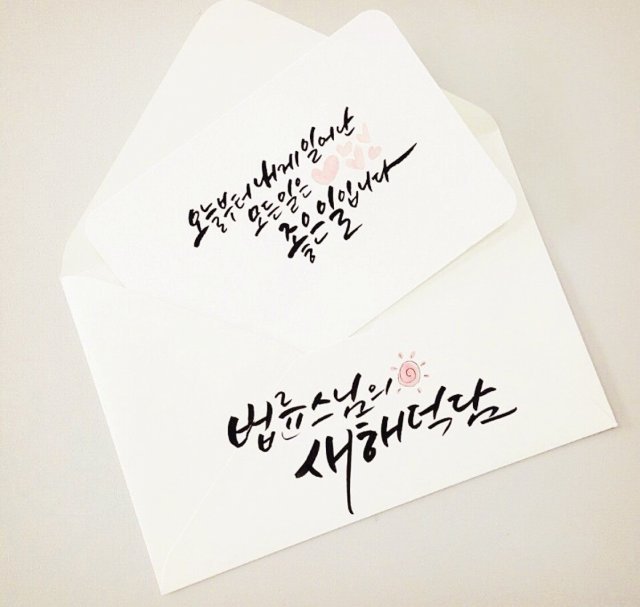 오늘부터 내게 일어난
모든 일은
좋은 일입니다
법륜스님의
새해덕담